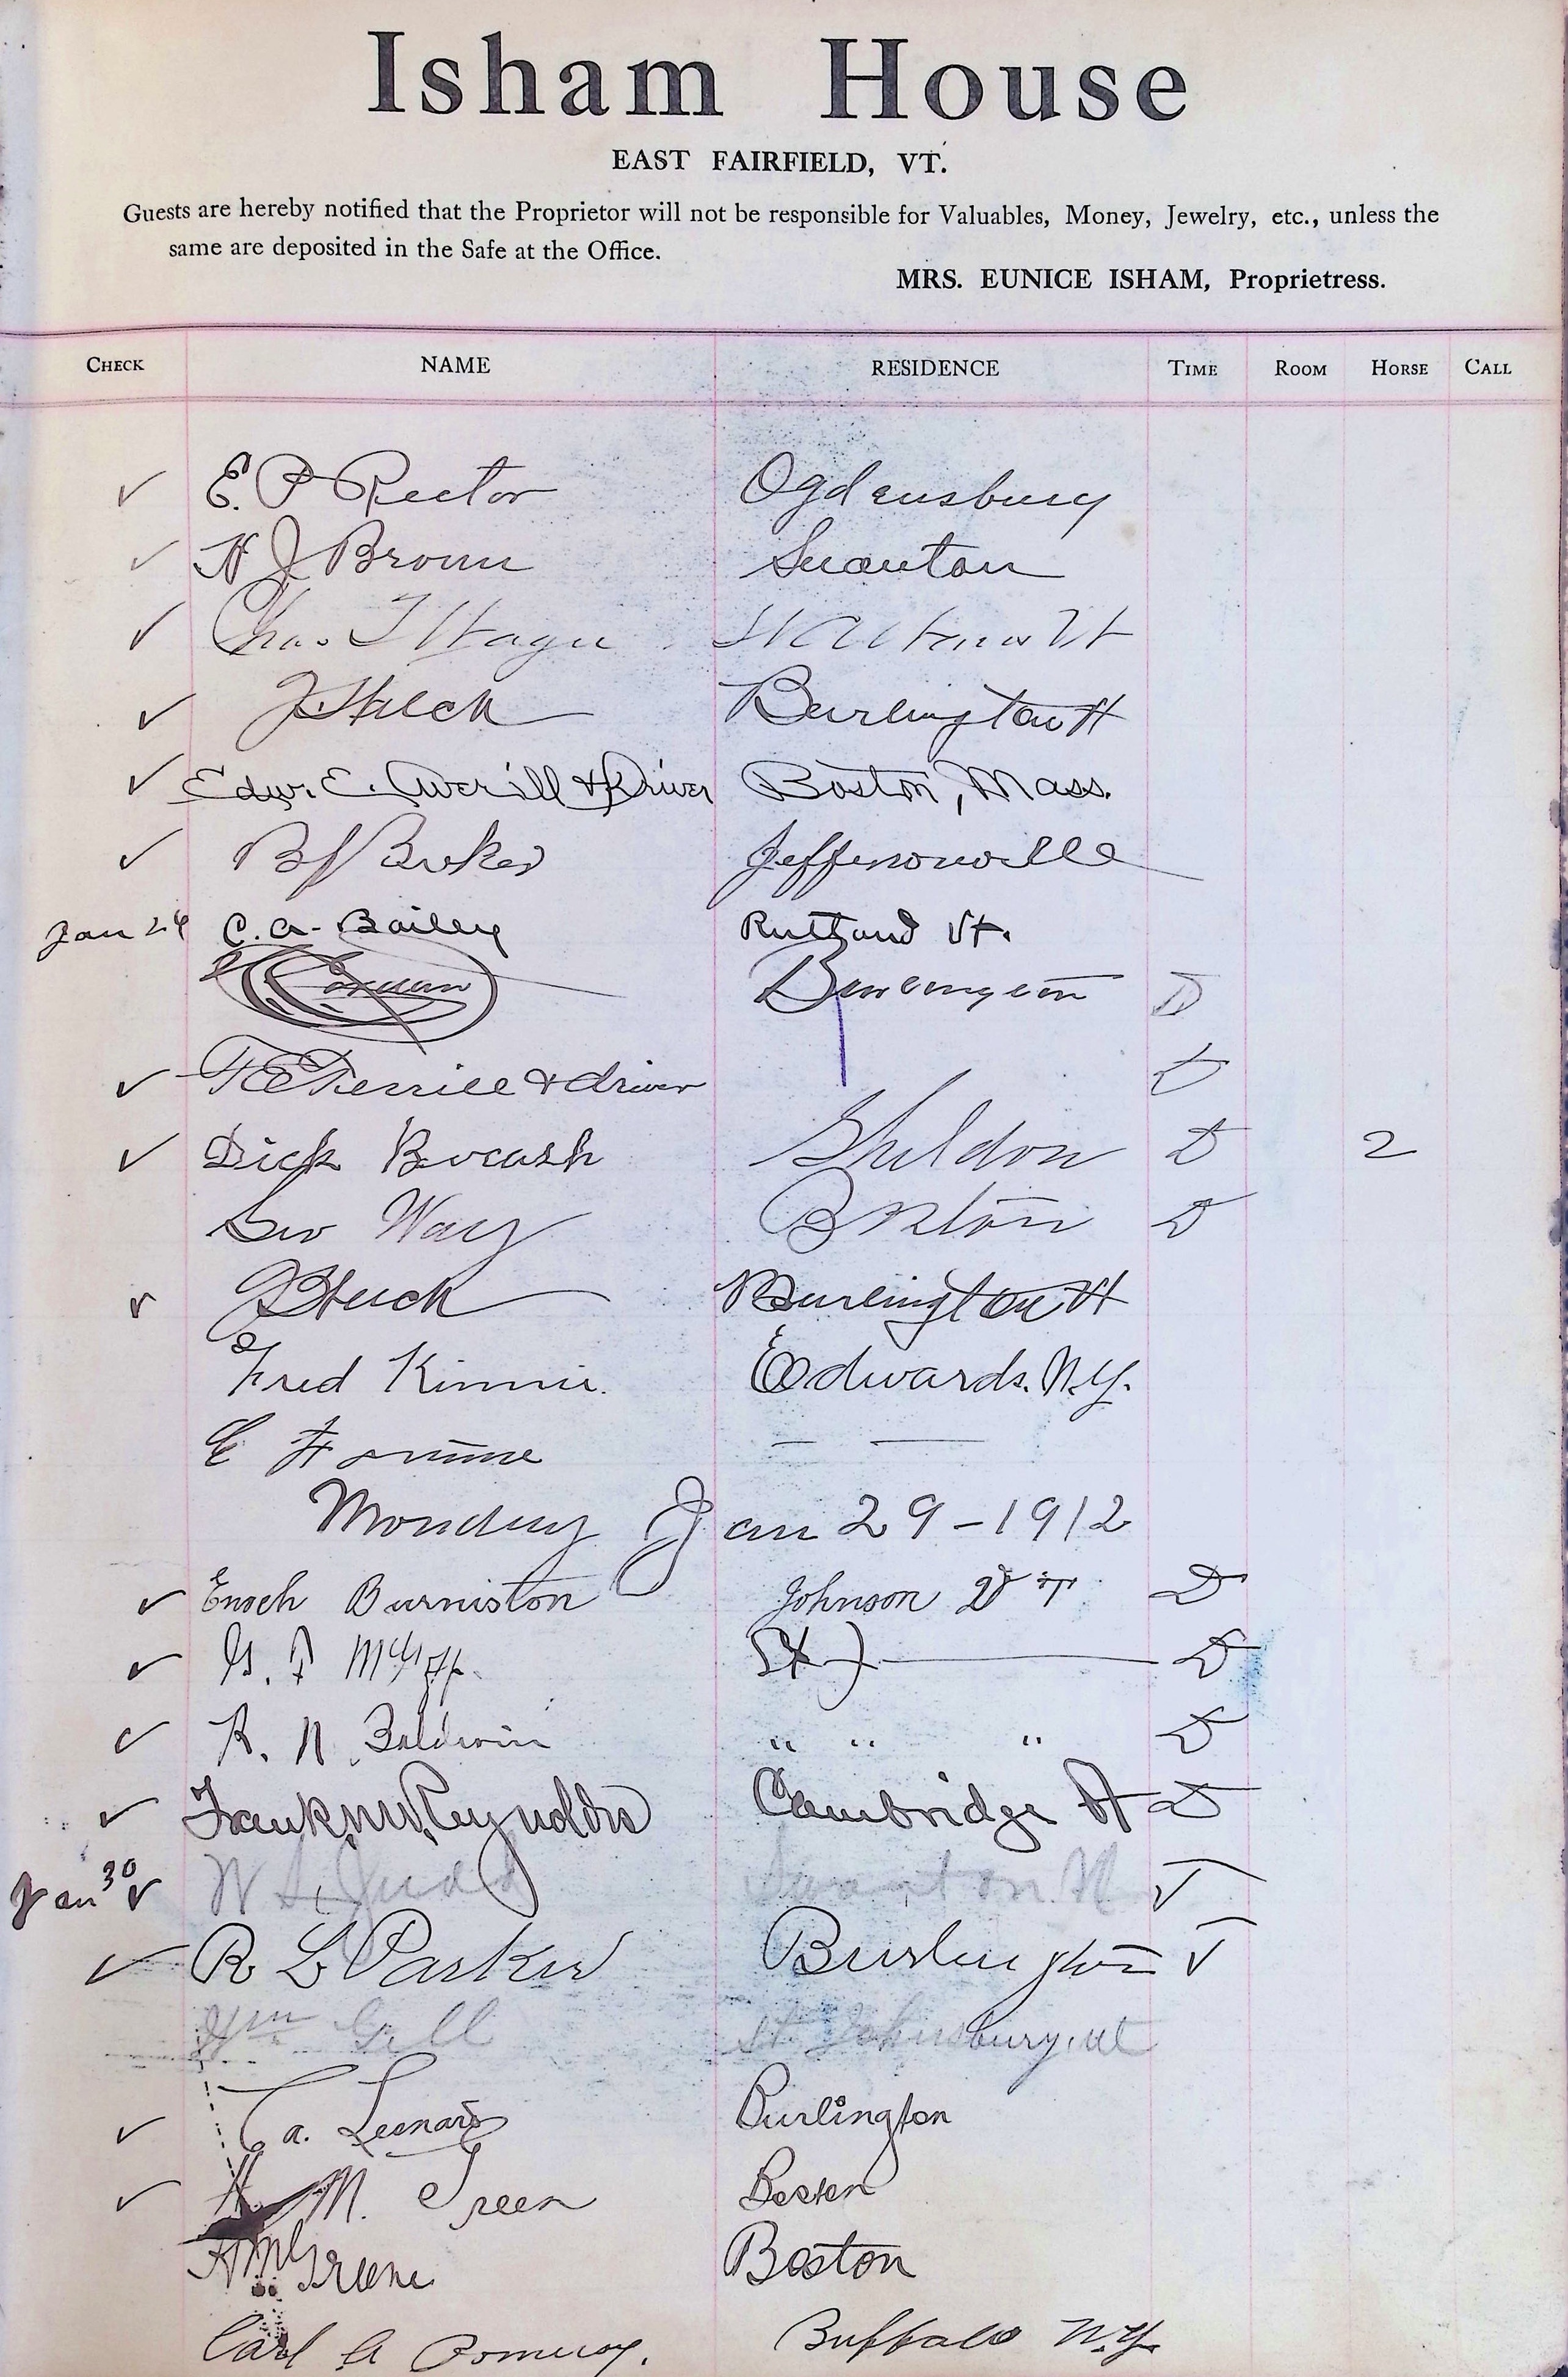 Isham House
EAST FAIRFIELD, VT.
Guests are hereby notified that the Proprietor will not be responsible for Valuables, Money, Jewelry, etc., unless the
same are deposited in the Safe at the Office.
MRS. EUNICE ISHAM, Proprietress.
CHECK NAME RESIDENCE TIME ROOM HORSE CALL
✓ E. P Rector Ogdensburg
✓ H J Brown Swanton
✓ Chas. T St Albans Vt
✓ Burlington Vt
✓ Edw. E. Averill & Driver Boston, Mass.
✓ Jeffersonville
Jan 24 C. A. Bailey Rutland Vt.
Burlington D
✓ F E Terrill & driver D
✓ Dick Bocash Sheldon D 2
Geo Way Boston D
✓ Burlington Vt
Fred Kinnie. Edwards. N.Y.
E — —
Monday Jan 29 - 1912
✓ Enoch Burniston Johnson VT D
✓ G. F St J D
✓ R. N. Baldwin " " " D
✓ Frank W Reynolds Cambridge Vt D
Jan 30 ✓ W S Judd Swanton Vt T
✓ R L Parker Burlington T
Wm Gill St Johnsbury, Vt
✓ C a. Leonard Burlington
✓ H M. Green Boston
H M Greene Boston
Carl A Pomeroy. Buffalo N.Y.